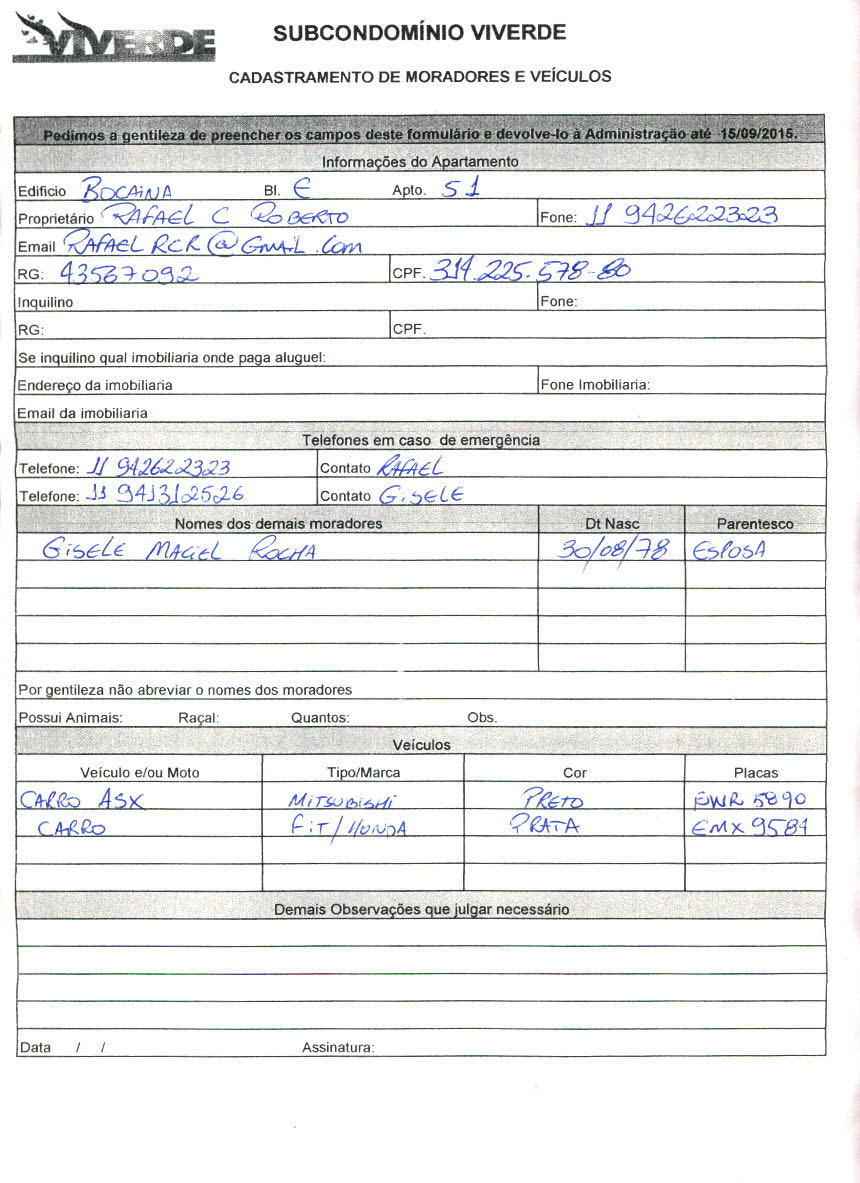 VIVERDE
SUBCONDOMÍNIO VIVERDE
CADASTRAMENTO DE MORADORES E VEÍCULOS
Pedimos a gentileza de preencher os campos deste formulário e devolve-lo à Administração até 15/09/2015.
Informações do Apartamento
Edificio BOCAINA Bl. E Apto. 51
Proprietário RAFAEL C ROBERTO Fone: 11 942622323
Email RAFAELRCR@GMAIL.COM
RG: 43567092 CPF. 314.225.578-80
Inquilino Fone:
RG: CPF.
Se inquilino qual imobiliaria onde paga aluguel:
Endereço da imobiliaria Fone Imobiliaria:
Email da imobiliaria
Telefones em caso de emergência
Telefone: 11 942622323 Contato RAFAEL
Telefone: 11 941312526 Contato GISELE
Nomes dos demais moradores Dt Nasc Parentesco
GISELE MACIEL ROCHA 30/08/78 ESPOSA
Por gentileza não abreviar o nomes dos moradores
Possui Animais: Raçal: Quantos: Obs.
Veículos
Veículo e/ou Moto Tipo/Marca Cor Placas
CARRO ASX MITSUBISHI PRETO EWR 5890
CARRO FIT/HONDA PRATA EMX 9581
Demais Observações que julgar necessário
Data / / Assinatura: